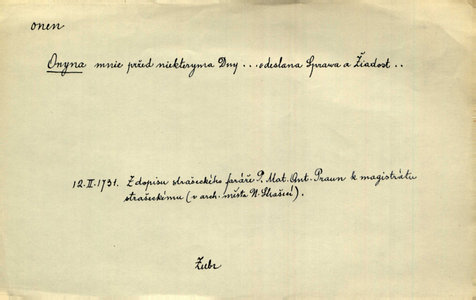 onen
Onyna mnie před niekteryma Dny ... odeslana Sprawa a Žiadost ..
12.II.1731. Z dopisu strašeckého faráře P. Mat. Ant. Praun k magistrátu
strašeckému (v arch. města N. Strašecí).
Žubr